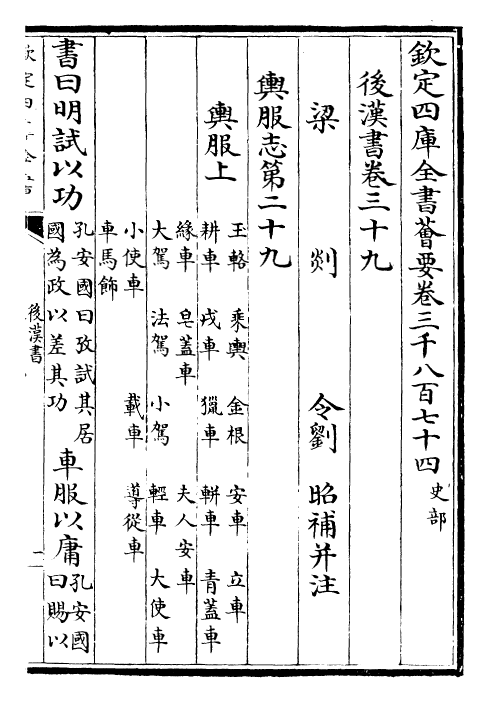 欽定四庫全書薈要卷三千八百七十四 史部
後漢書卷三十九
梁 剡 令劉 昭補并注
輿服志第二十九
輿服上
玉輅 乘輿 金根 安車 立車
耕車 戎車 獵車 軿車 青蓋車
緑車 皂蓋車 夫人安車
大駕 法駕 小駕 輕車 大使車
小使車 載車 導從車
車馬飾
書曰明試以功
孔安國曰攷試其居
國為政以差其功
車服以庸
孔安國
曰賜以
後漢書